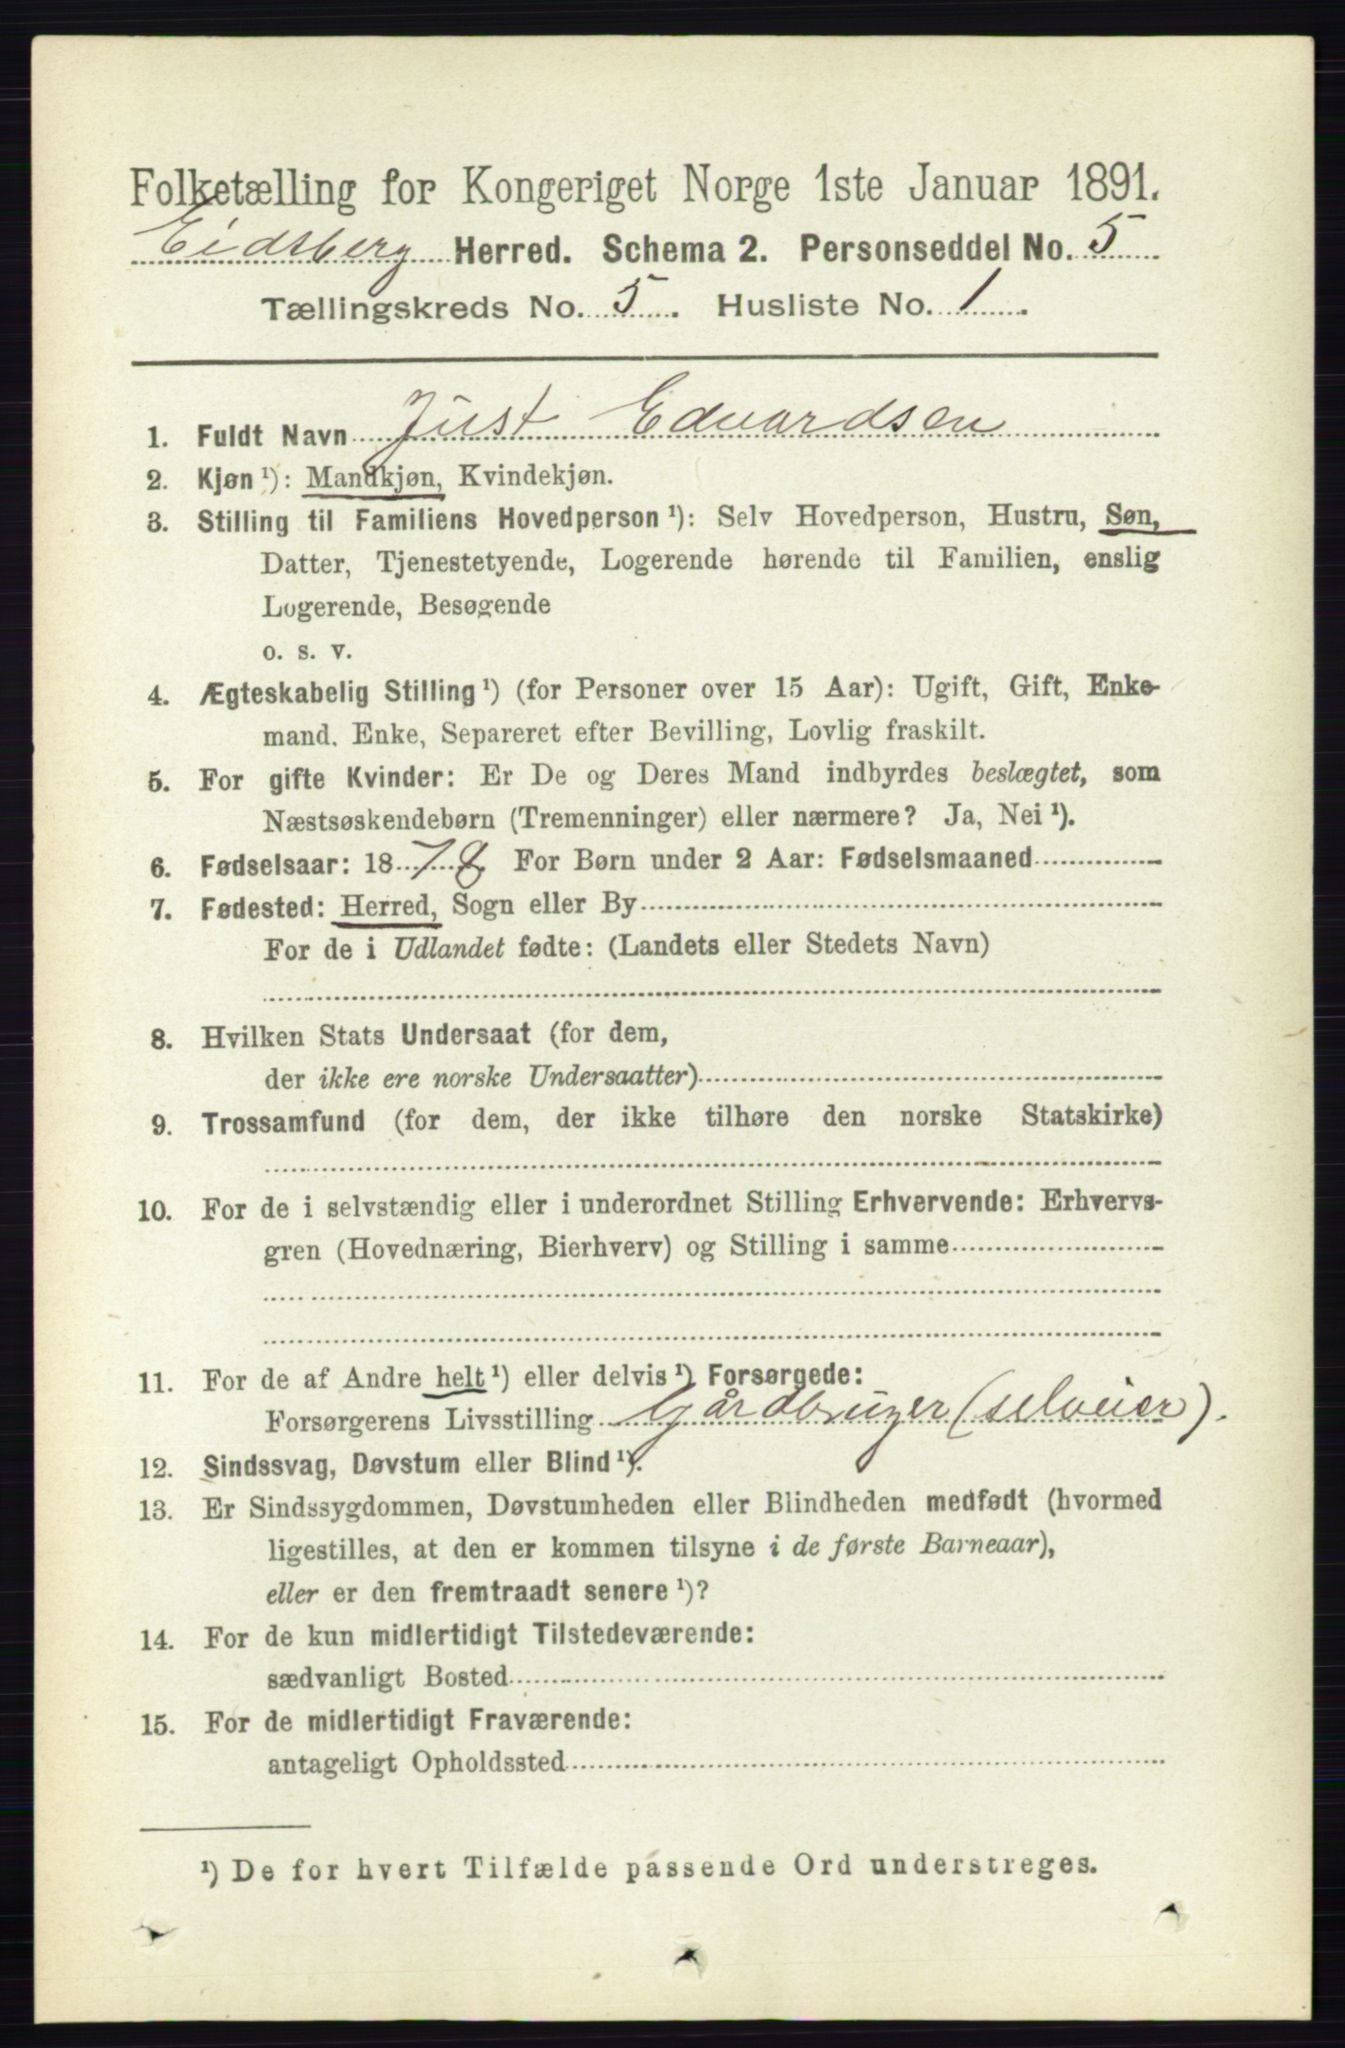 Folketælling for Kongeriget Norge 1ste Januar 1891.
Eidsberg Herred. Schema 2. Personseddel No. 5
Tællingskreds No. 5. Husliste No. 1.
1. Fuldt Navn Just Edvardsen
2. Kjøn ¹): Mandkjøn, Kvindekjøn.
3. Stilling til Familiens Hovedperson ¹): Selv Hovedperson, Hustru, Søn,
Datter, Tjenestetyende, Logerende hørende til Familien, enslig
Logerende, Besøgende
o. s. v.
4. Ægteskabelig Stilling ¹) (for Personer over 15 Aar): Ugift, Gift, Enke-
mand, Enke, Separeret efter Bevilling, Lovlig fraskilt.
5. For gifte Kvinder: Er De og Deres Mand indbyrdes beslægtet, som
Næstsøskendebørn (Tremenninger) eller nærmere? Ja, Nei ¹).
6. Fødselsaar: 1878 For Børn under 2 Aar: Fødselsmaaned
7. Fødested: Herred, Sogn eller By
For de i Udlandet fødte: (Landets eller Stedets Navn)
8. Hvilken Stats Undersaat (for dem,
der ikke ere norske Undersaatter)
9. Trossamfund (for dem, der ikke tilhøre den norske Statskirke)
10. For de i selvstændig eller i underordnet Stilling Erhvervende: Erhvervs-
gren (Hovednæring, Bierhverv) og Stilling i samme
11. For de af Andre helt ¹) eller delvis ¹) Forsørgede:
Forsørgerens Livsstilling Gårdbruger (selveier).
12. Sindssvag, Døvstum eller Blind ¹).
13. Er Sindssygdommen, Døvstumheden eller Blindheden medfødt (hvormed
ligestilles, at den er kommen tilsyne i de første Barneaar),
eller er den fremtraadt senere ¹)?
14. For de kun midlertidigt Tilstedeværende:
sædvanligt Bosted
15. For de midlertidigt Fraværende:
antageligt Opholdssted
¹) De for hvert Tilfælde passende Ord understreges.